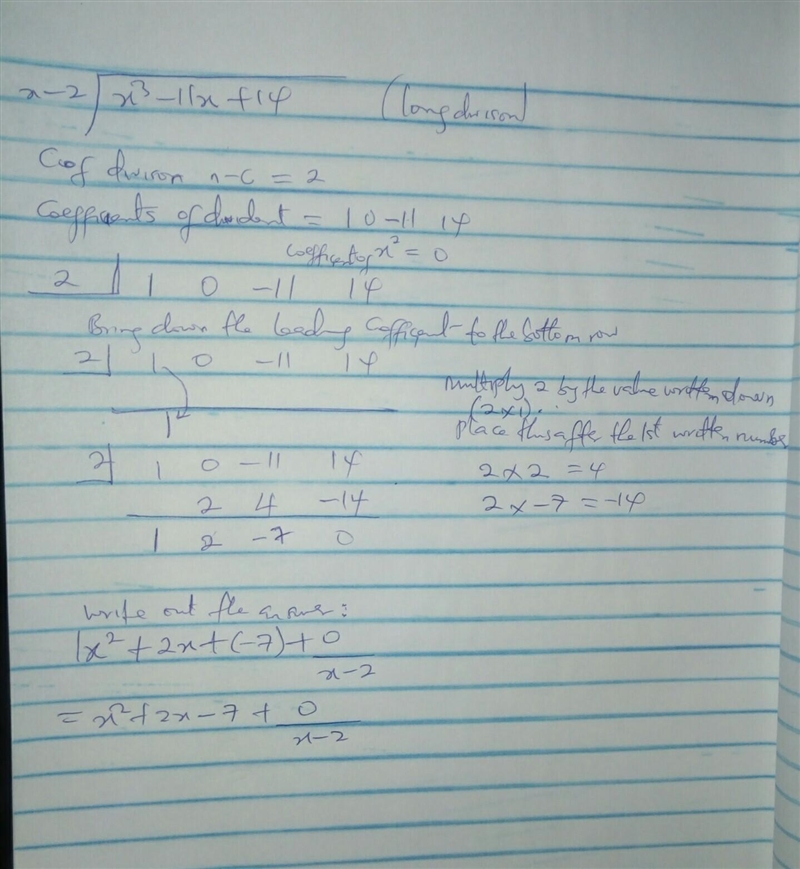 x-2 x³-11x+14 (long division)
Coef division x-c = 2
Coefficients of dividend = 1 0 -11 14
coefficient of x² = 0
2 1 0 -11 14
Bring down the leading coefficient to the bottom row
2 1 0 -11 14
multiply 2 by the value written down
(2x1).
1
place this after the 1st written number
2 1 0 -11 14 2 x 2 = 4
2 4 -14 2 x -7 = -14
1 2 -7 0
write out the answer:
1x²+2x+(-7)+0
x-2
= x²+2x-7+0
x-2